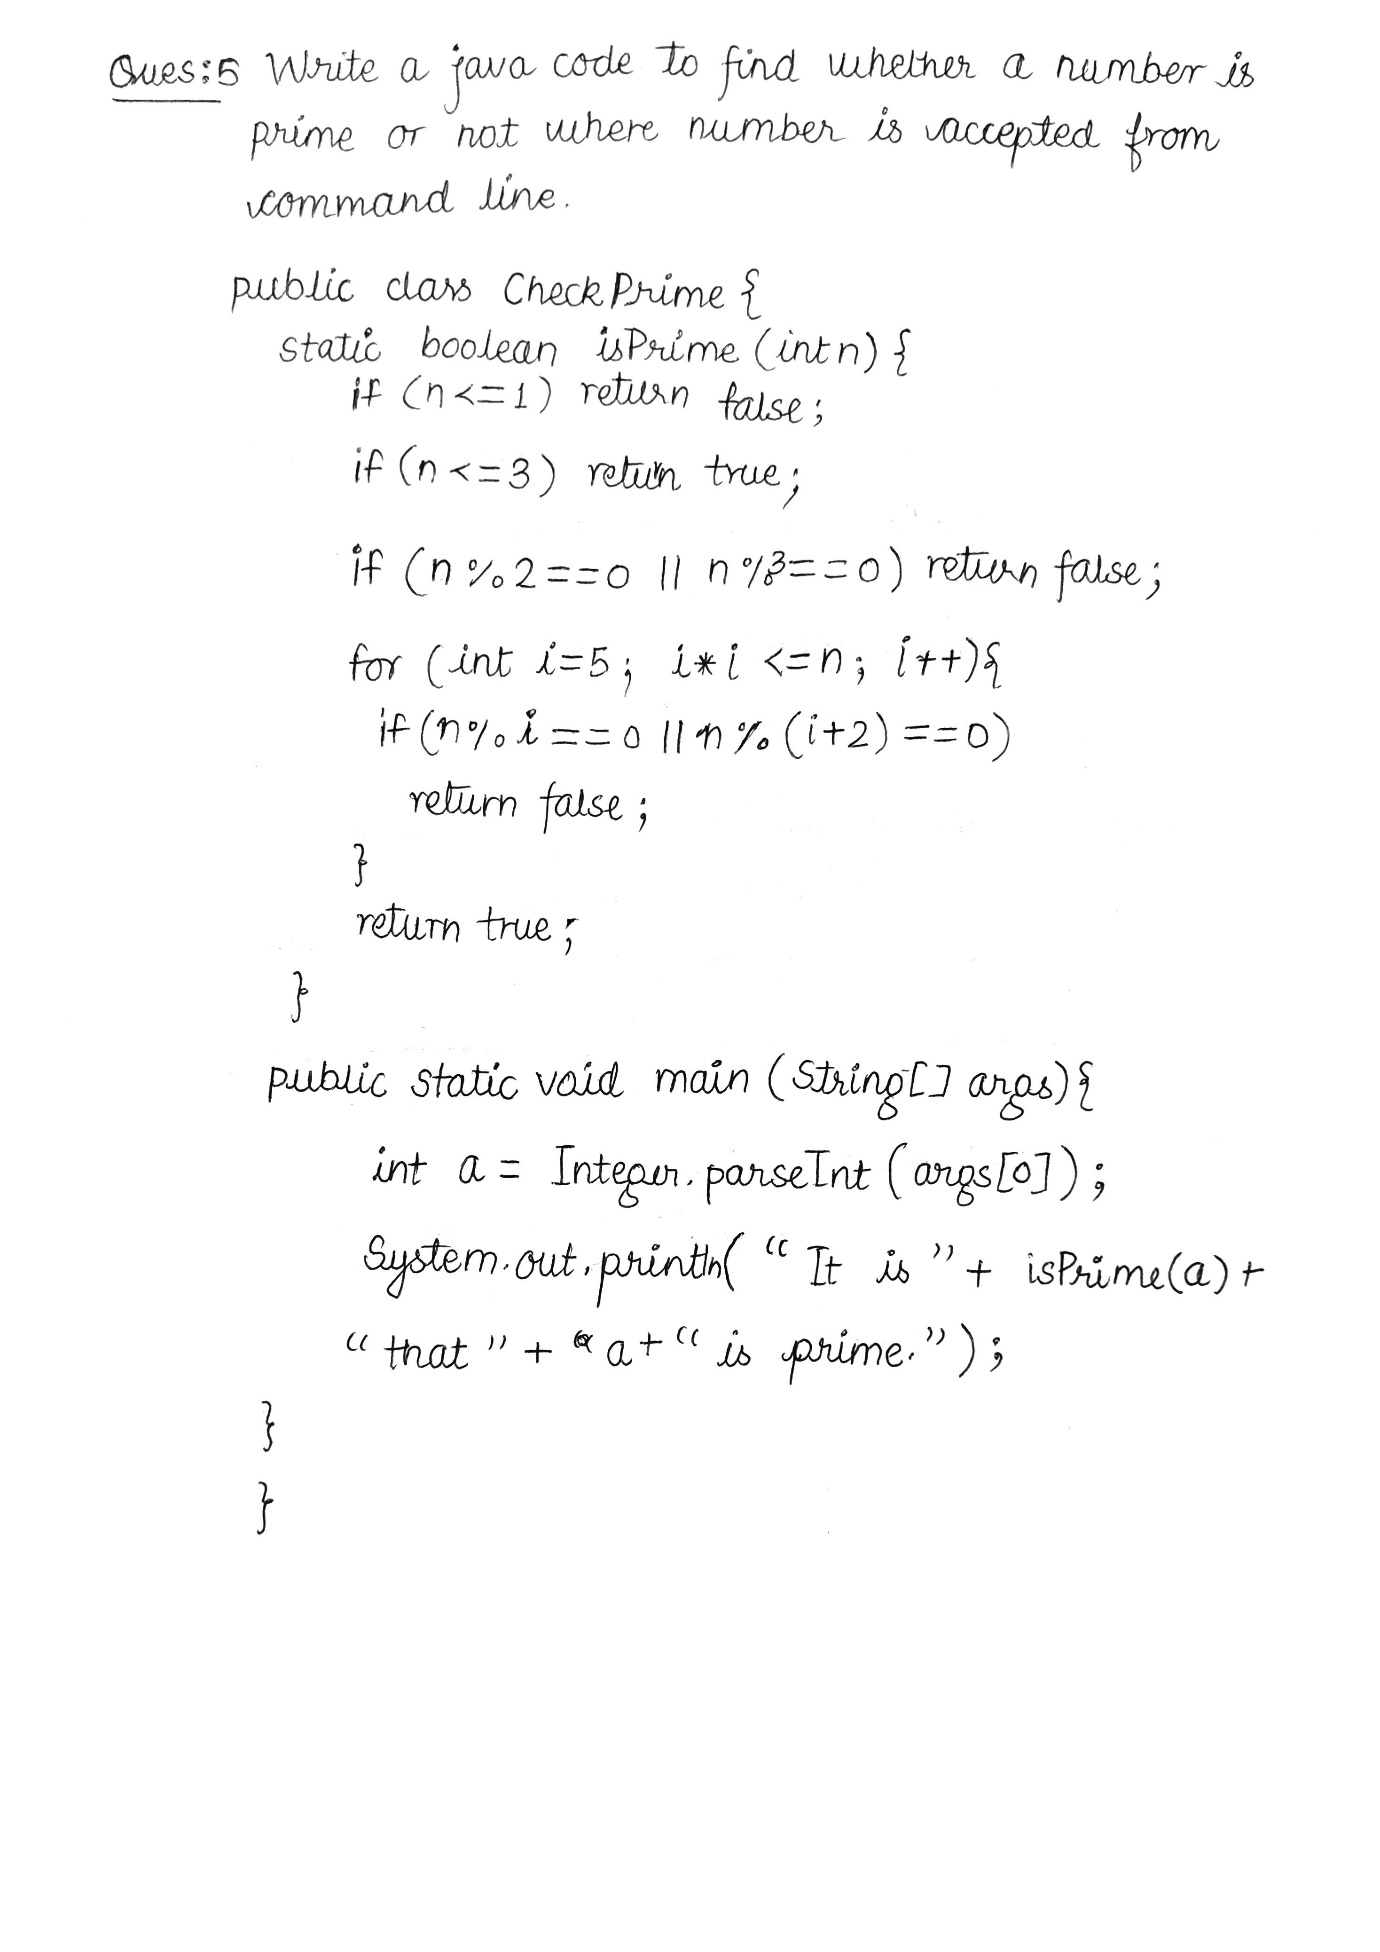 Ques:5 Write a java code to find whether a number is
prime or not where number is accepted from
command line.
public class CheckPrime {
static boolean isPrime (int n) {
if (n <= 1) return false;
if (n <= 3) return true;
if (n % 2 == 0 || n % 3 == 0) return false;
for (int i=5; i*i <= n; i++){
if (n % i == 0 || n % (i+2) == 0)
return false;
}
return true;
}
public static void main (String[] args){
int a = Integer.parseInt (args[0]);
System.out.println( “ It is ” + isPrime(a) +
“ that ” + a + “ is prime.” );
}
}